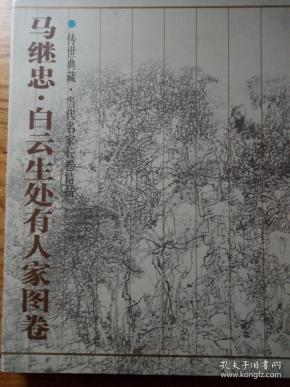 马继忠·白云生处有人家图卷
传世典藏·当代名家长卷精品
孔夫子旧书网